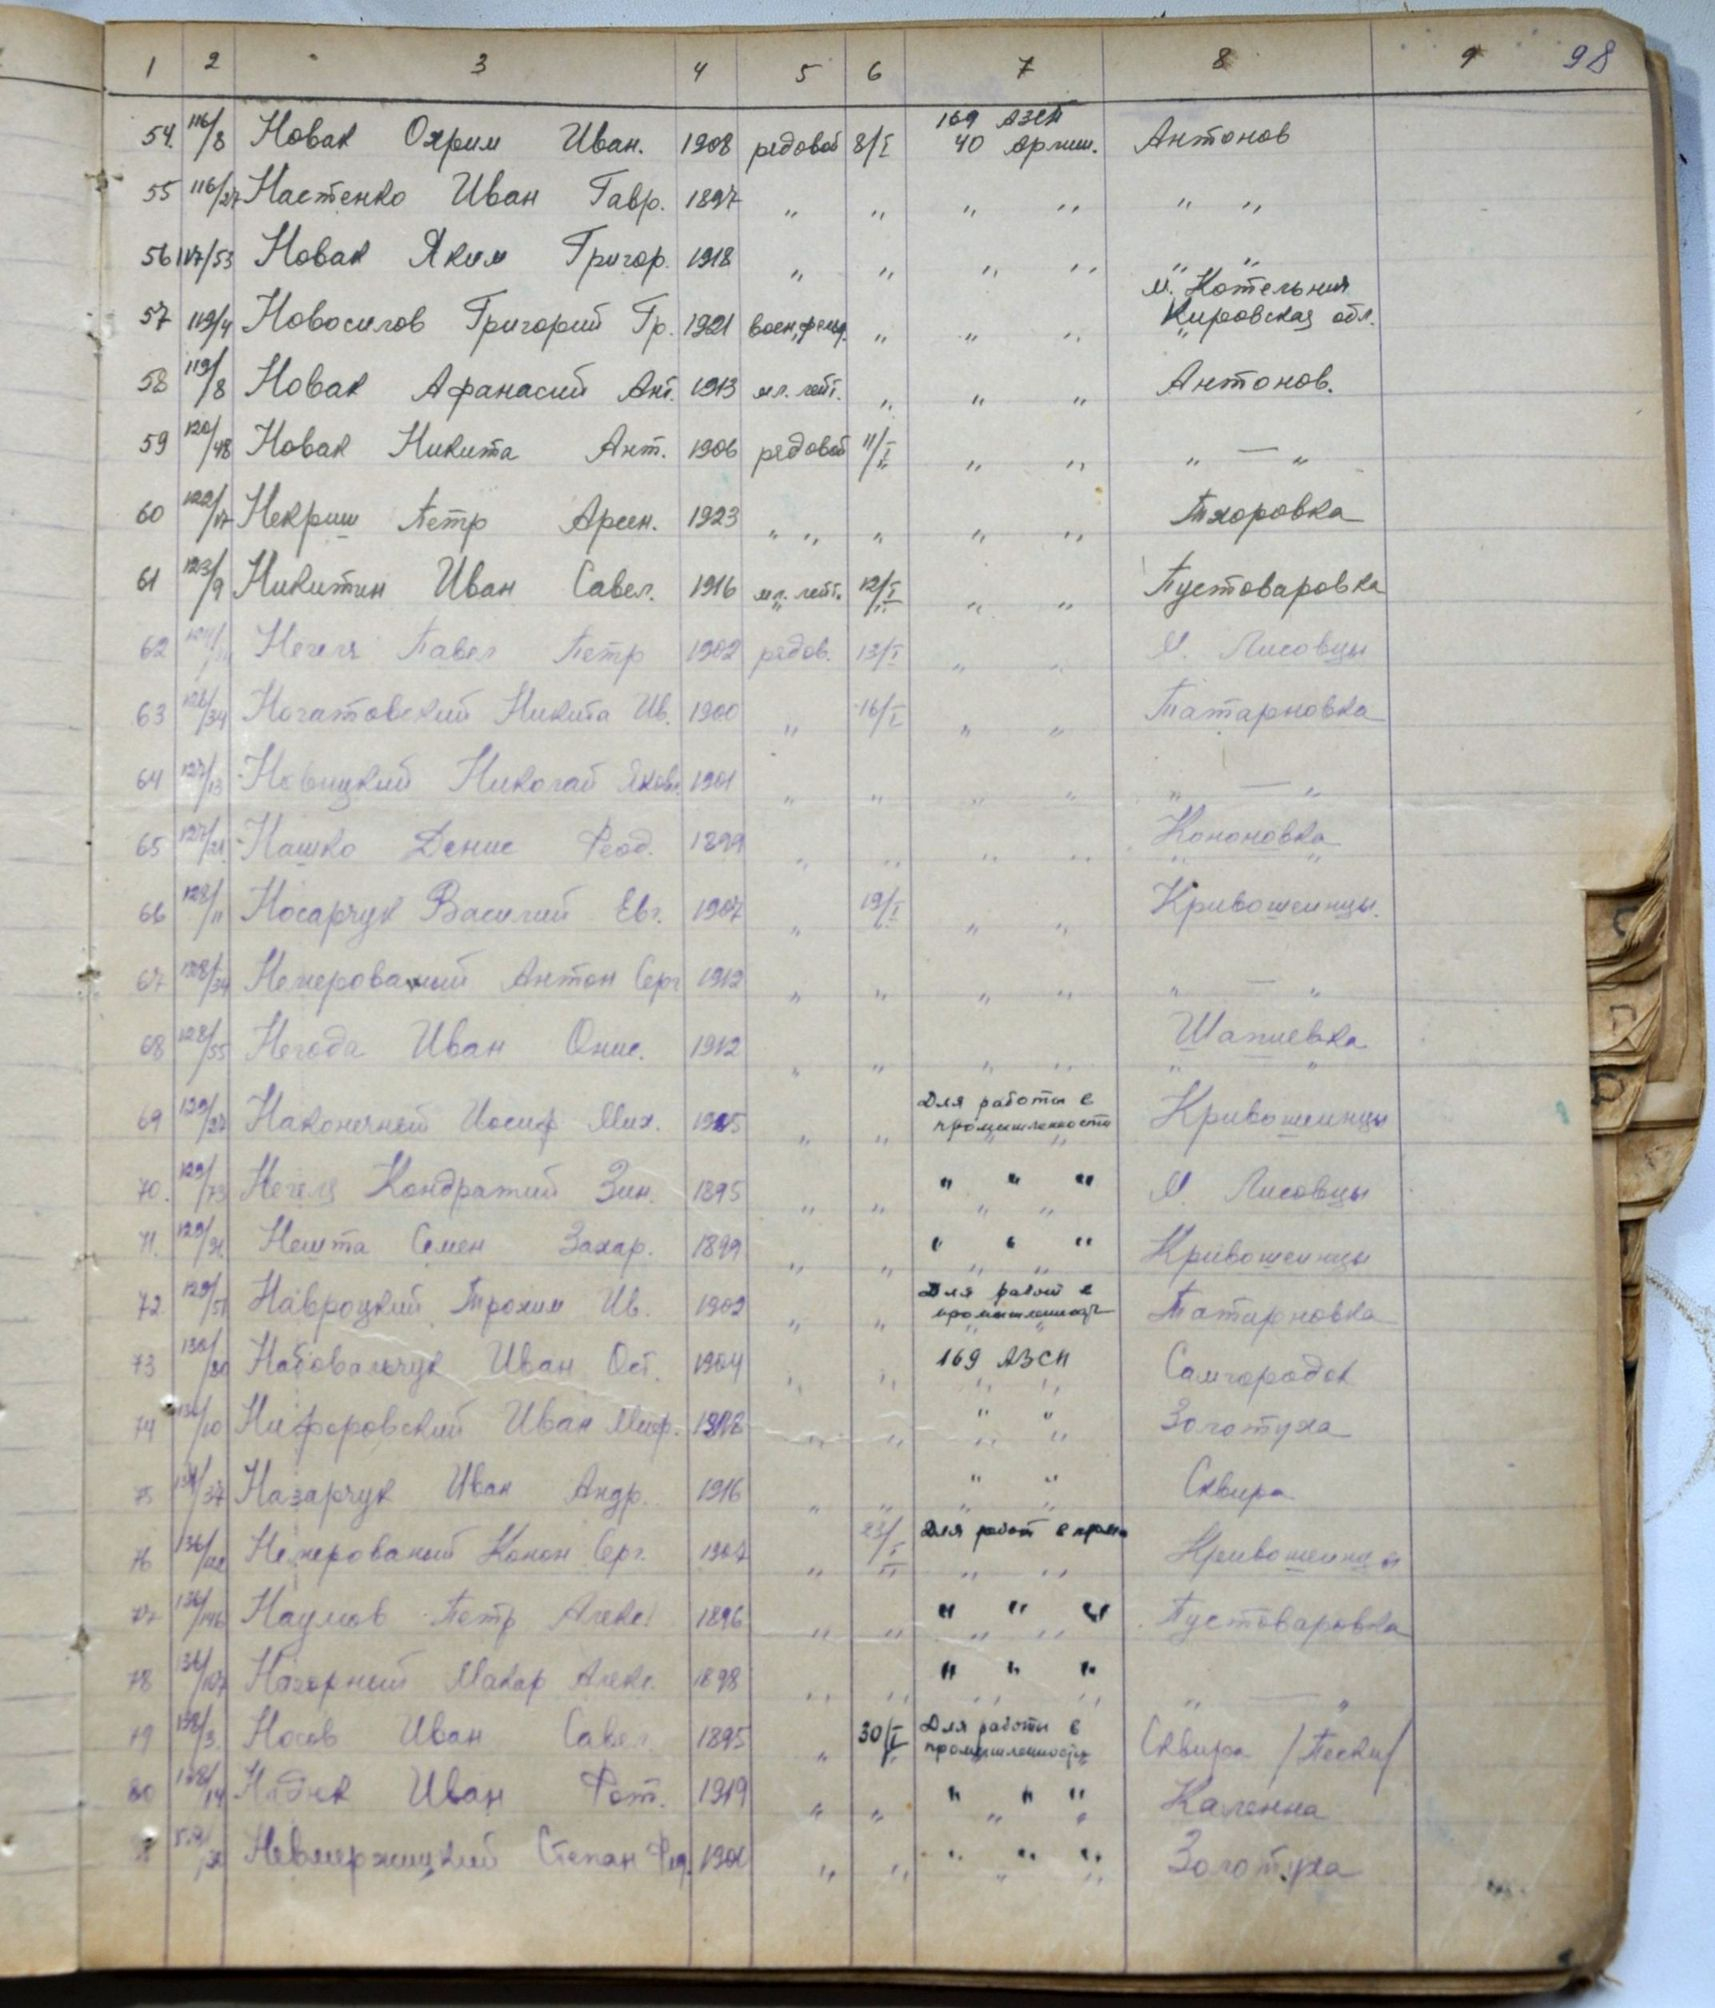 1 2 3 4 5 6 7 8 9 98
54. 116/8 Новак Охрим Иван. 1908 рядовой 8/I 169 АЗСП 40 Армии. Антонов
55 116/27 Настенко Иван Гавр. 1897 " " " " " "
56 117/53 Новак Яким Григор. 1918 " " " " " "
57 119/4 Новосилов Григорий Гр. 1921 воен.фельд. " " " м. Котельния Кировская обл.
58 119/8 Новак Афанасий Ант. 1913 мл. лейт. " " " Антонов.
59 120/48 Новак Никита Ант. 1906 рядовой 11/I " " " — "
60 122/17 Некриш Петр Арсен. 1923 " " " " " Тхоровка
61 123/9 Никитин Иван Савел. 1916 мл. лейт. 12/I " " Пустоваровка
62 Негеля Павел Петр 1902 рядов. 13/I " " М. Лисовцы
63 126/34 Ногатовский Никита Ив. 1900 " 16/I " " Татариовка
64 127/13 Новицкий Николай Яковл. 1901 " " " " " — "
65 127/21 Нашко Денис Феод. 1899 " " " " Кононовка
66 128/11 Носарчук Василий Евг. 1907 " 19/I " " Кривошеинцы.
67 128/34 Немерованый Антон Серг 1912 " " " " " — "
68 128/55 Негода Иван Онис. 1912 " " " " Шапиевка
69 129/27 Наконечный Иосиф Мих. 1905 " " Для работы в промышленности Кривошеинцы
70. 129/73 Негеля Кондратий Зин. 1895 " " " " " М. Лисовцы
71. 129/91 Нешта Семен Захар. 1899 " " " " " Кривошеинцы
72. 129/51 Навроцкий Трохим Ив. 1902 " " Для работ в Татариовка
73 130/20 Набовальчук Иван Ост. 1904 " " 169 АЗСП Самгородок
74 /10 Ниферовский Иван Миф. " " " " Золотуха
75 /37 Назарчук Иван Андр. 1916 " " " " Сквира
76 136/ Немерованый Конон Серг. 1907 " 23/I Для работ в пром Кривошеинцы
77 136/146 Наумов Петр Алекс. 1896 " " " " " Пустоваровка
78 136/ Нагорный Макар Алекс. 1898 " " " " " " — "
79 138/3 Носов Иван Савел. 1895 " 30/I Для работы в промышленности Сквира /Пески/
80 138/14 Надюк Иван Фот. 1919 " " " " " Каленна
Невмержицкий Степан Фед. " " " " " Золотуха